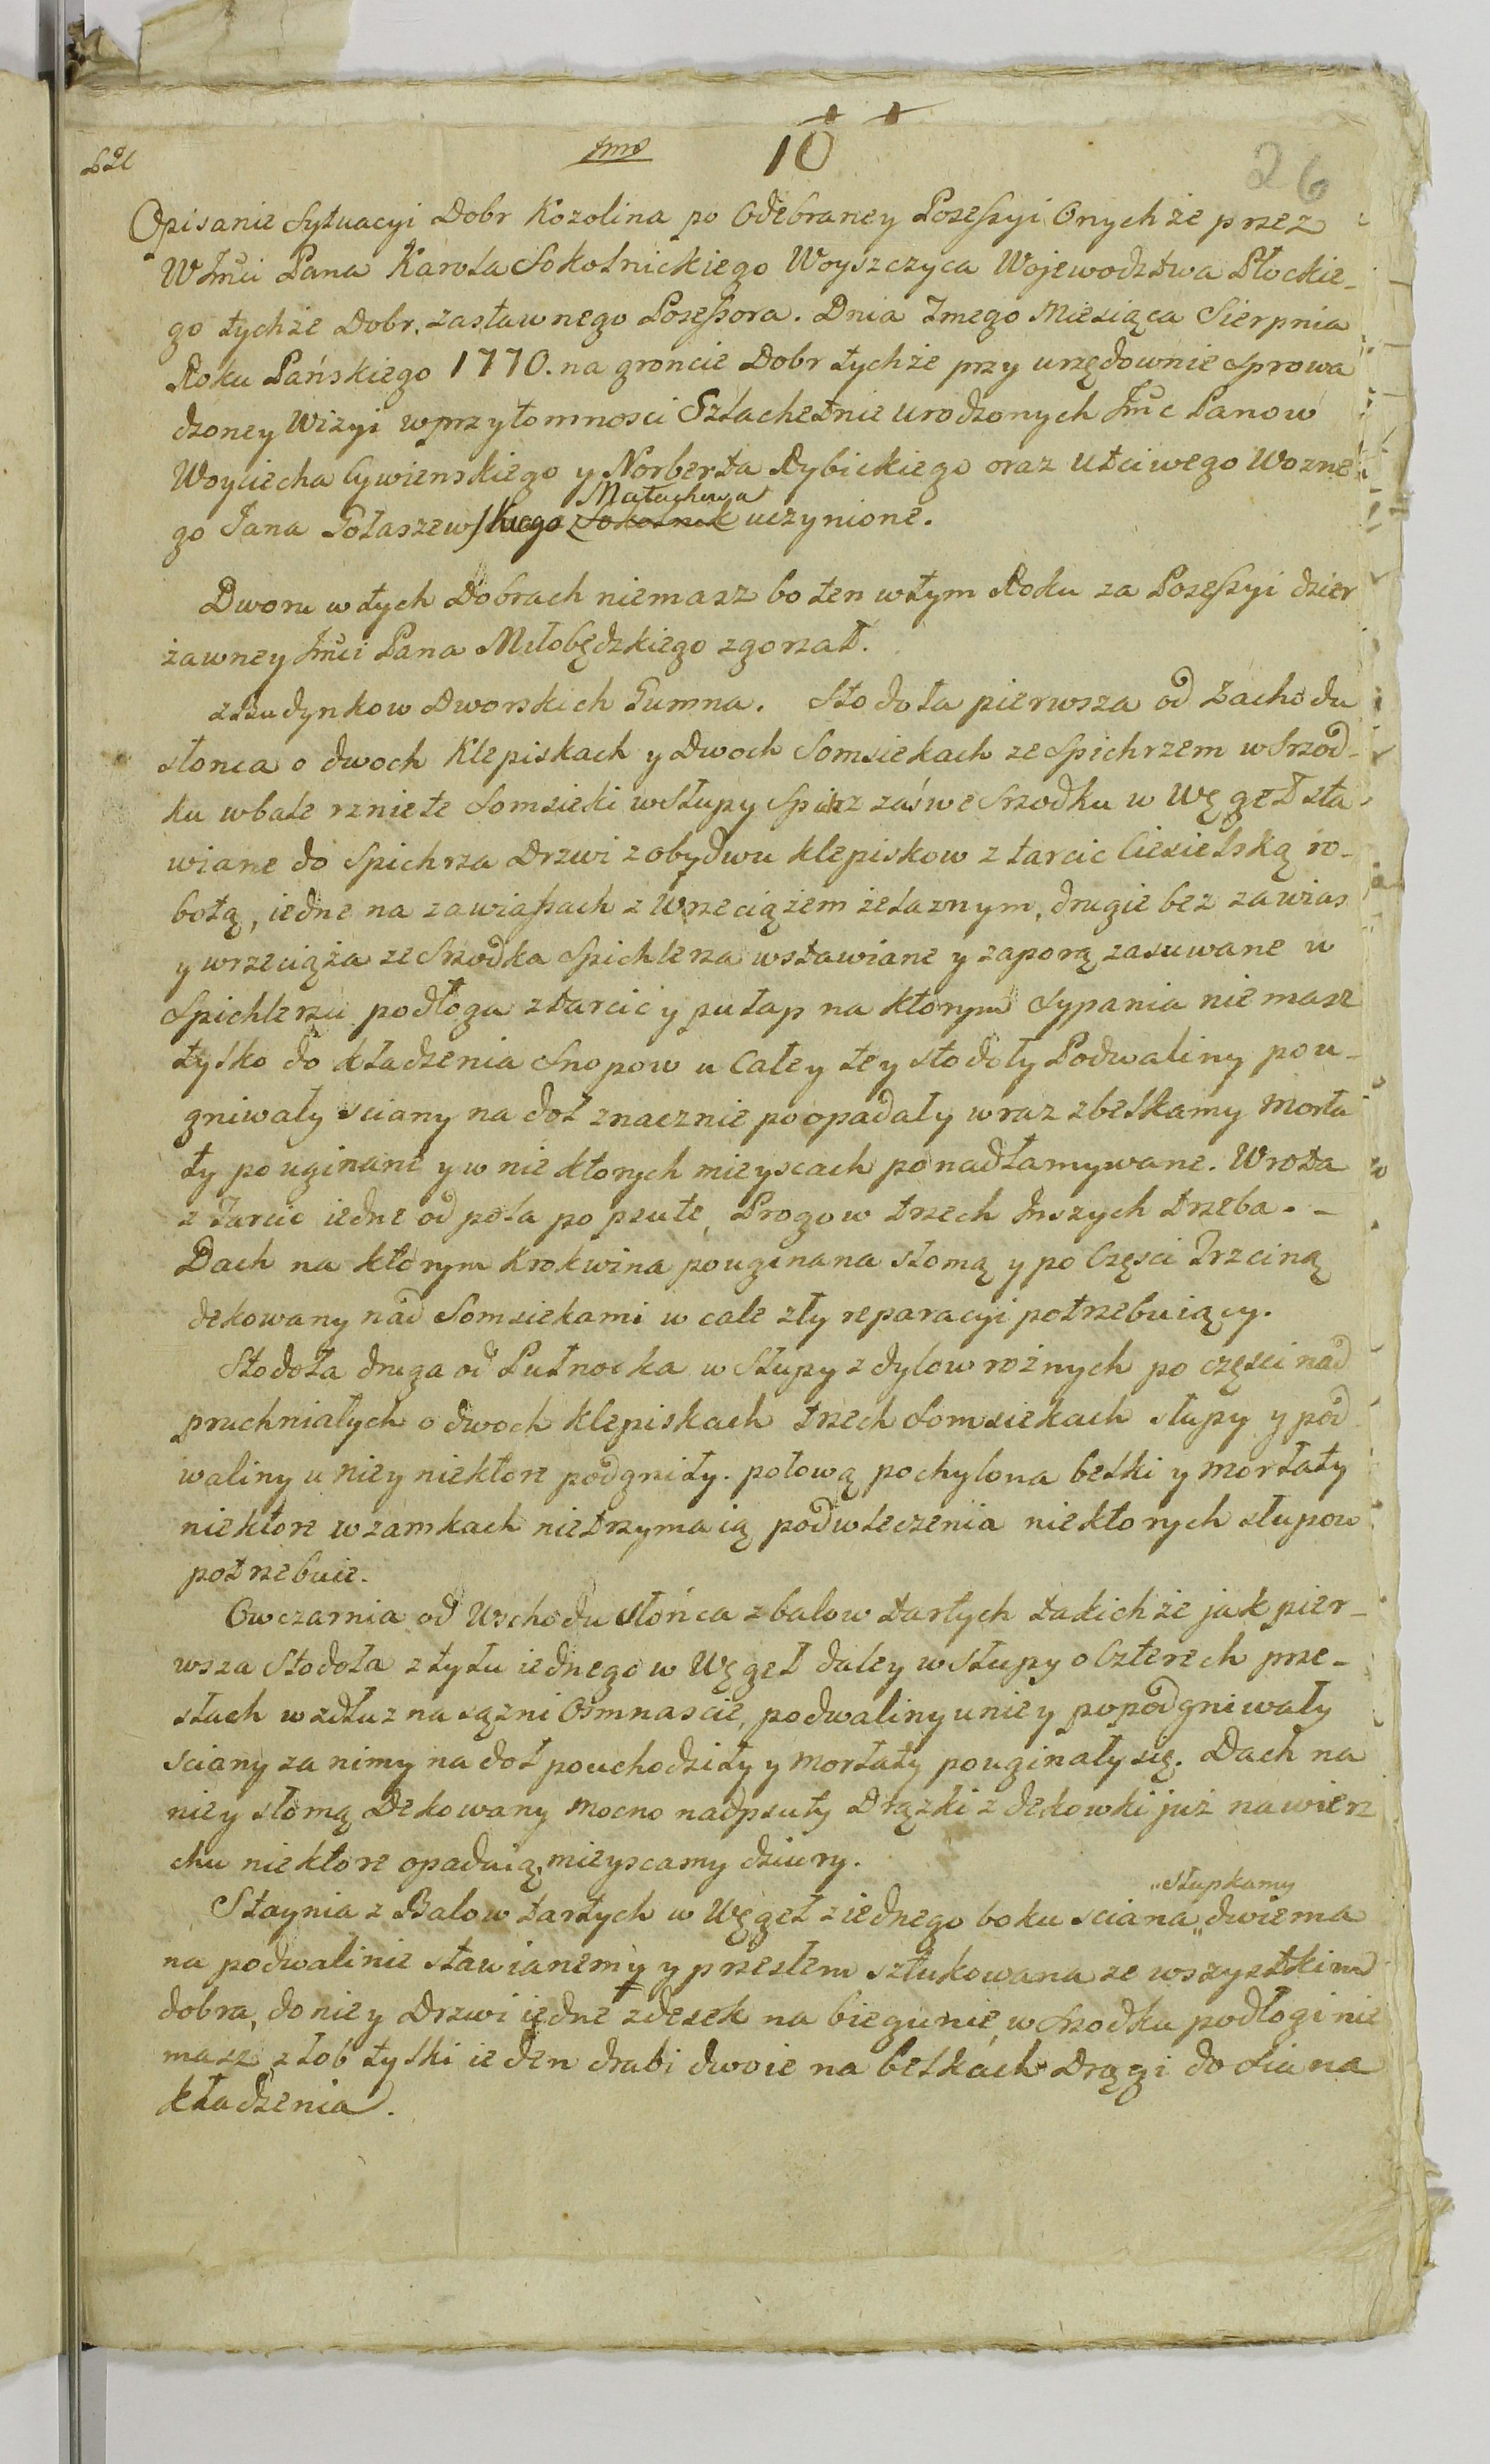 10
26
Opisanie Sytuacyi Dobr Kozolina po Odebraney Posessyi Onychże przez
WJmci Pana Karola Sokolnickiego Woyszczyca Wojewodztwa Płockie-
go tychże Dobr, zastawnego Posessora. Dnia 7mego Miesiąca Sierpnia
Roku Pańskiego 1770. na groncie Dobr tychże przy urzędownie sprowa
dzoney Wizyi w przytomnosci Szlachetnie urodzonych Jmc Panow
Woyciecha Cywienskiego y Norberta Rybickiego oraz utciwego Wozne
Małachowa
go Jana Gołaszewskiego z Sokolnik uczynione.
Dworu w tych Dobrach niemasz bo ten w tym Roku za Posessyi dzier
żawney Jmci Pana Miłobędzkiego zgorzał.
z Budynkow Dworskich Gumna. Stodoła pierwsza od Zachodu
słonca o dwoch Klepiskach y Dwoch Somsiekach ze Spichrzem w Srzod-
ku w bale rzniete Somsieki w Słupy Spichrz záś we Srzodku w Węgeł sta
wiane do Spichrza Drzwi z obydwu klepiskow z tarcic Ciesielską ro-
botą, iedne na zawiassach z Wrzeciążem żelaznym, drugie bez zawias
y wrzeciąża ze Srzodka Spichlerza wstawiane y zaporą zasuwane w
Spichlerzu podłoga z tarcic y pułap na ktorym Sypania nie masz
tylko do kładzenia Snopow u Całey tey stodoły Podwaliny pou-
gniwały sciany na doł znacznie poopadały wraz z belkamy Morła
ty pouginane y w niektorych mieyscach ponadłamywane. Wrota
z Tarcic iedne od pola popsute, Progow trzech Inszych trzeba. -
Dach na ktorym Krokwina pouginana słomą y po Części Trzciną
dekowany nad Somsiekami w cale zły reparacyi potrzebuiący.
Stodoła druga od Pułnocka w Słupy z dylow rożnych po części nad
pruchniałych o dwoch klepiskach trzech Somsiekach słupy y pod
waliny u niey niektore podgniły. połową pochylona belki y Morłaty
niektore w zamkach nietrzymaią podwleczenia niektorych słupow
potrzebuie.
Owczarnia od Wschodu słońca z balow tartych takichże jak pier-
wsza Stodoła z tyłu iednego w Węgeł daley w Słupy o Czterech prze-
słach wzdłuz na sązni Osmnascie, podwaliny u niey popodgniwały
sciany za nimy na doł pouchodziły y Morłaty pouginały się. Dach na
niey słomą Dekowany mocno nadpsuty Drązki z dekowki już na wierz
chu niektore opaduią, mieyscamy dziury.
„słupkamy
Staynia z Balow tartych w Węgeł z iednego boku sciana „dwiema
na podwalinie stawianemy y przesłem sztukowana ze wszystkim
dobra, do niey Drzwi iedne z desek na biegunie, w Srzodku podłogi nie
masz złob tylki ieden drabi dwoie na belkach Drągi do siana
kładzenia.